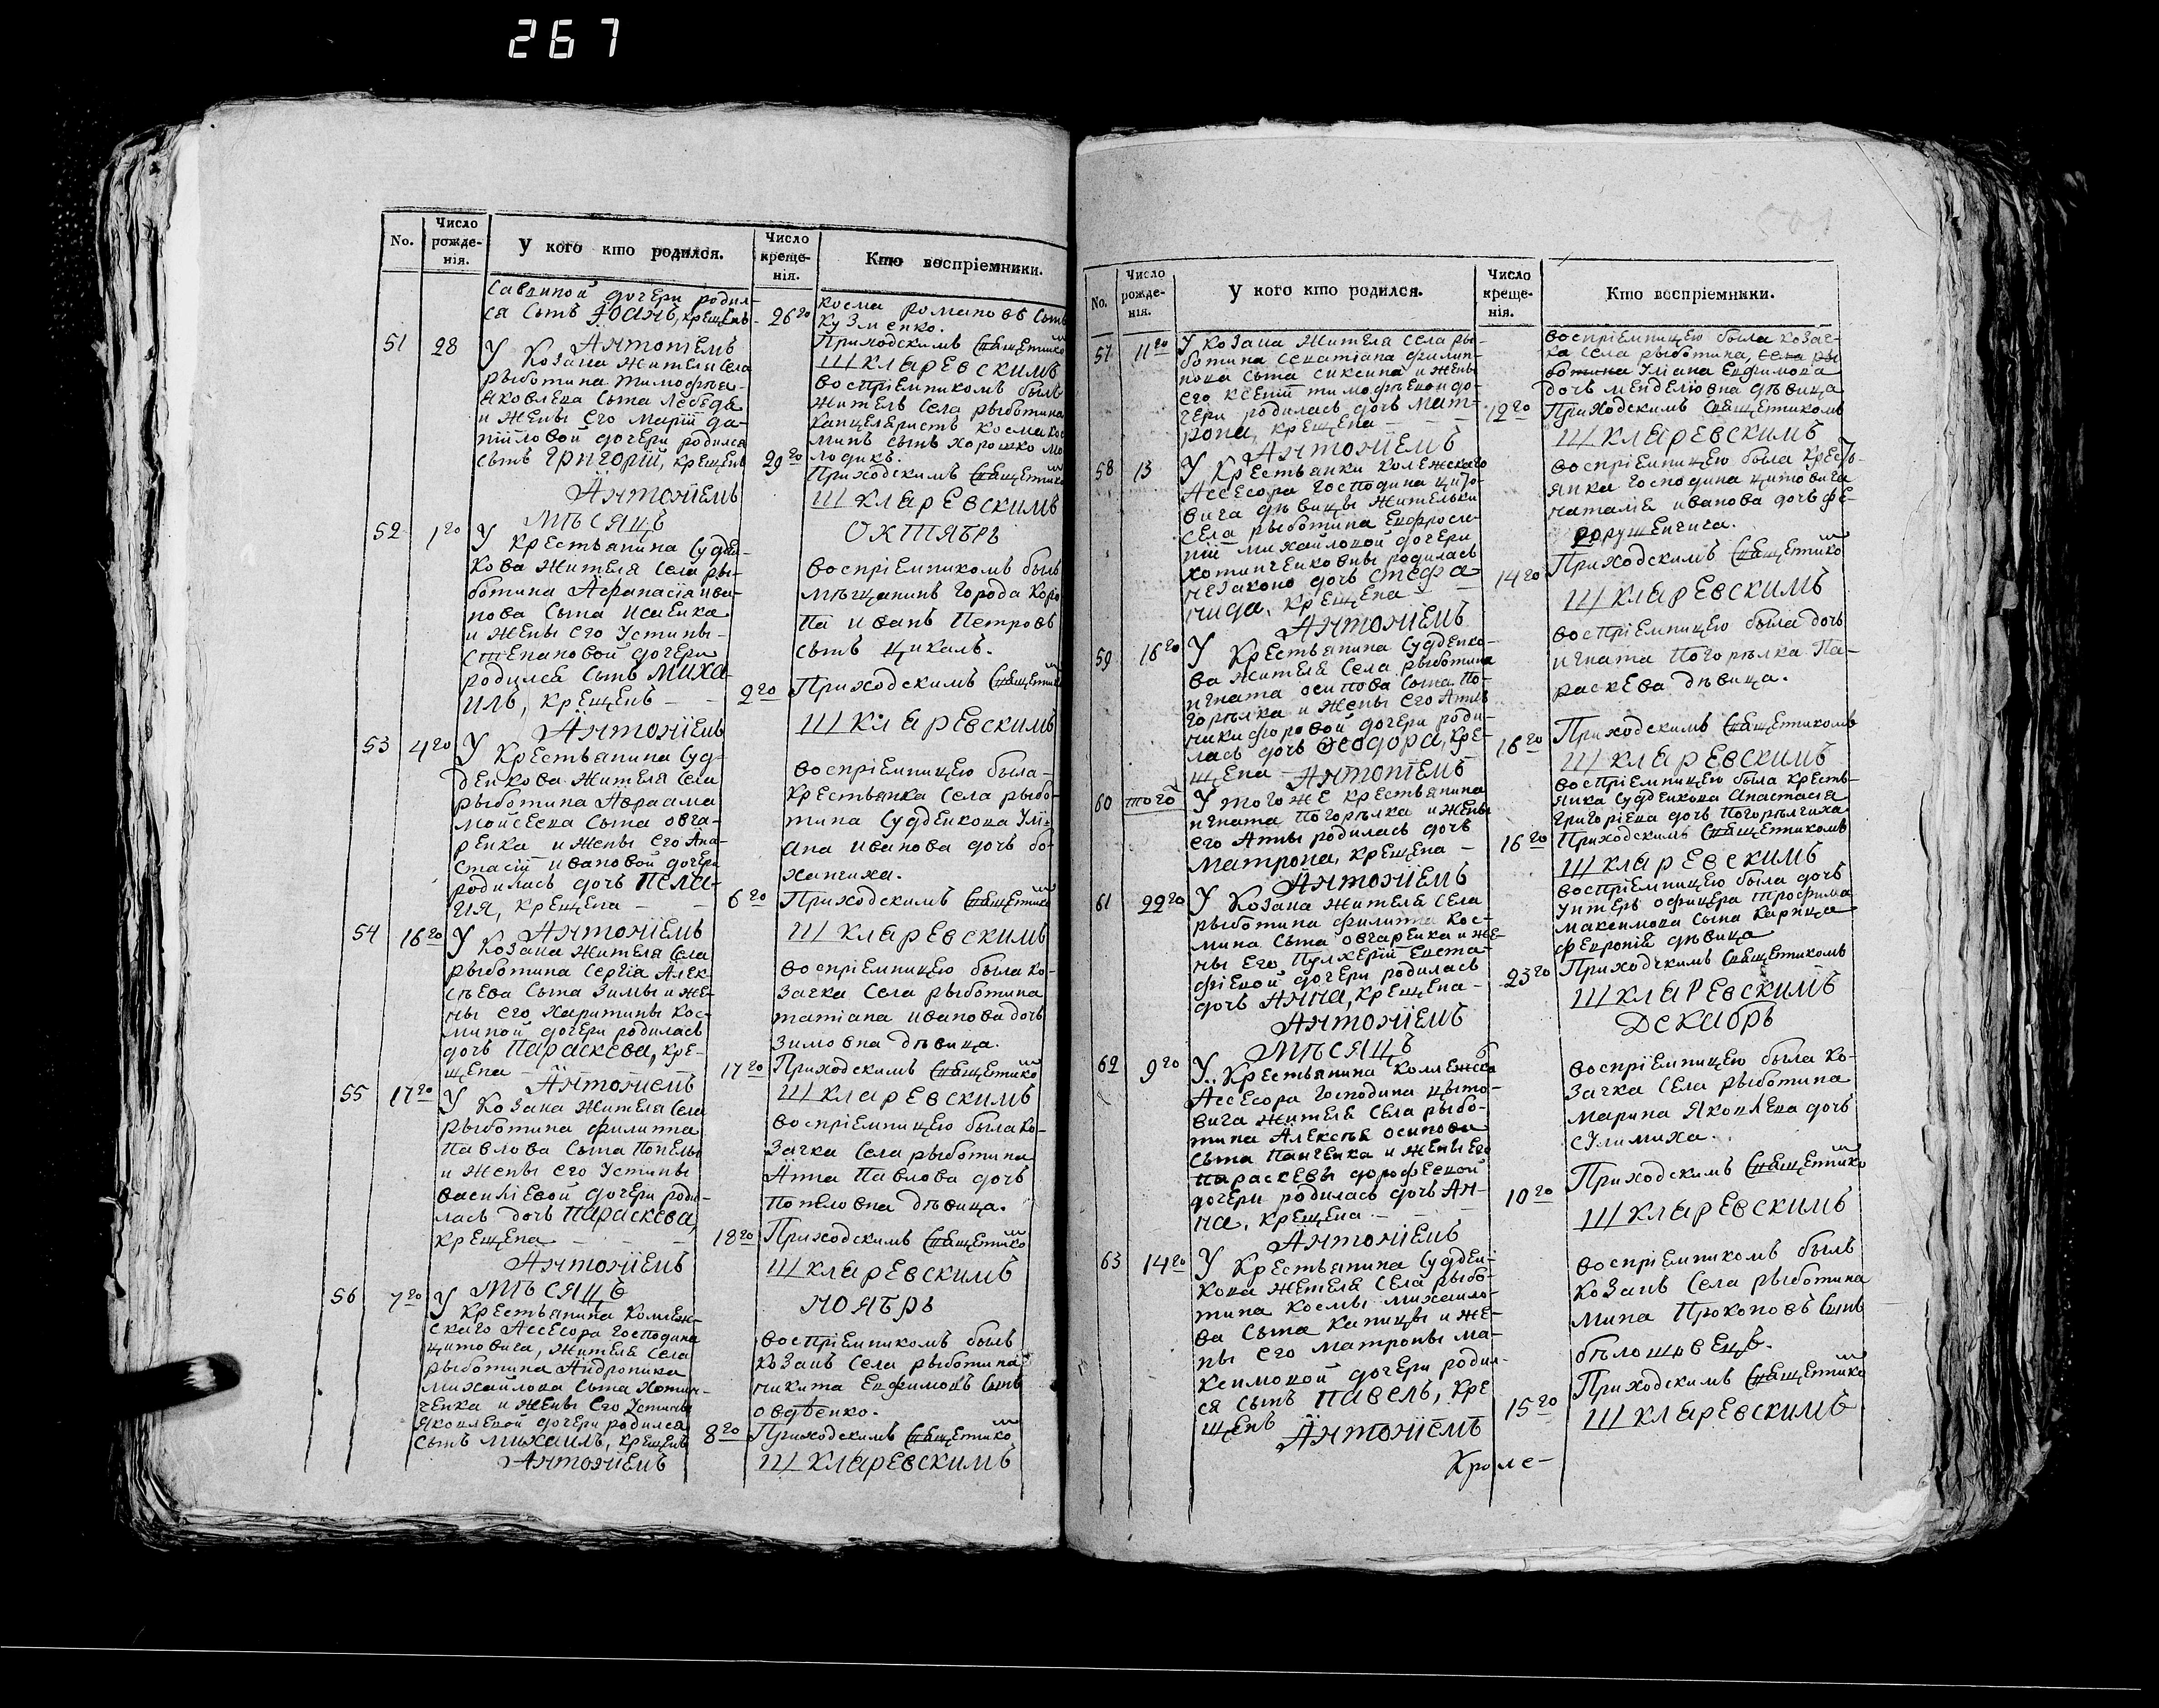 267
No.
Число рожде- нія.
У кого кто родился.
Число креще- нія.
Кто воспріемники.
Саввиной дочери родил-
ся сынъ Їоанъ, крещенъ
26го
косма романовъ сынъ
кузменко.
Приходскимъ
Антонїемъ
Шкларевскимъ
51
28
У Козака жителя села
рыботина тимофѣя
яковлева сына лебедя
и жены его Маріи да-
ніиловой дочери родился
сынъ Григорій, крещенъ
29го
воспріемникомъ былъ
житель села рыботина
канцеляристъ косма кос
минъ сынъ хорошко мо
лодикъ.
Приходскимъ
Антонїемъ
Шкларевскимъ
Мѣсяцъ
Октябрь
52
1го
У Крестьянина Судѣн-
кова жителя села ры-
ботина Афанасія ива-
нова сына исаенка
и жены его Устины
степановой дочери
родился сынъ Миха-
илъ, крещенъ
2го
воспріемникомъ былъ
мѣщанинъ города коро
па иванъ Петровъ
сынъ цикалъ.
Приходскимъ
Антонїемъ
Шкларевскимъ
53
4го
У Крестьянина Суд-
денкова жителя села
рыботина Авраама
мойсеева сына овча-
ренка и жены его Ана-
стасіи ивановой дочери
родилась дочь Пела-
гия, крещена
6го
воспріемницею была
крестьянка села рыбо-
тина судденкова Улі-
ана иванова дочь бо-
ханчиха.
Приходскимъ
Антонїемъ
Шкларевскимъ
54
16го
У Козака жителя села
рыботина сергія Алек-
сѣева сына Зимы и же-
ны его харитины кос-
миной дочери родилась
дочь Параскева, кре-
щена
17го
воспріемницею была ко-
зачка села рыботина
татіана иванова дочь
зимовна дѣвица.
Приходскимъ
Антонїемъ
Шкларевскимъ
55
17го
У Козака жителя села
рыботина филиппа
павлова сына Попелы
и жены его Устины
василіевой дочери роди-
лась дочь Параскева,
крещена
18го
воспріемницею была ко-
зачка села рыботина
Анна Павлова дочь
Попеловна дѣвица.
Приходскимъ
Антонїемъ
Шкларевскимъ
Мѣсяцъ
Ноябрь
56
7го
У Крестьянина Коллеж-
скаго Ассесора господина
цитовича, жителя села
рыботина Андроника
михайлова сына хотин-
ченка и жены его Устины
яковлевой дочери родился
сынъ михаилъ, крещенъ
8го
воспріемникомъ былъ
козакъ села рыботина
никита Евфимовъ сынъ
овдѣенко.
Приходскимъ
Антонїемъ
Шкларевскимъ
No.
Число рожде- нія.
У кого кто родился.
Число креще- нія.
Кто воспріемники.
57
11го
У козака жителя села ры-
ботина севатіана филип-
пова сына сиксина и жены
его ксеніи тимофѣевой до-
чери родилась дочь Мат-
рона, крещена
12го
воспріемницею была козач-
ка села рыботина, села ры
ботина Уліана Евфимова
дочь менделювна дѣвица
Приходскимъ
Антонїемъ
Шкларевскимъ
58
13
У Крестьянки коллежскаго
Ассесора господина цито-
вича дѣвицы жительки
села рыботина Евфроси-
ніи михайловой дочери
хотинченковны родилась
незаконо дочь стефа
нида, крещена
14го
воспріемницею была кресть-
янка господина цитовича
наталія иванова дочь фе-
дорущенчига.
Приходскимъ
Антонїемъ
Шкларевскимъ
59
16го
У Крестьянина Судденко-
ва жителя села рыботина
игната осипова сына По-
горѣлка и жены его Анны
никифоровой дочери роди-
лась дочь Феодора, кре-
щена
16го
воспріемницею была дочь
игната Погорѣлка Па-
раскева дѣвица.
Приходскимъ
Антонїемъ
Шкларевскимъ
60
того
У тогоже крестьянина
игната погорѣлка и жены
его Анны родилась дочь
матрона, крещена
16го
воспріемницею была кресть-
янка Судденкова Анастасія
григоріева дочь Погорѣлчиха
Приходскимъ
Антонїемъ
Шкларевскимъ
61
22го
У Козака жителя села
рыботина филиппа кос-
мина сына овчаренка и же-
ны его Пулхеріи Евста-
фіевой дочери родилась
дочь Анна, крещена
23го
воспріемницею была дочь
унтеръ офицера трофима
максимова сына карпца
февронія дѣвица
Приходскимъ
Антонїемъ
Шкларевскимъ
Мѣсяцъ
Декабрь
62
9го
У Крестьянина коллежска
Ассесора господина цыто-
вича жителя села рыбо-
тина Алексѣя осипова
сына панченка и жены его
параскевы дорофеевой
дочери родилась дочь Ан-
на, крещена
10го
воспріемницею была ко-
зачка села рыботина
марина яковлева дочь
сулимиха.
Приходскимъ
Антонїемъ
Шкларевскимъ
63
14го
У Крестьянина Судден-
кова жителя села рыбо-
тина космы михайло-
ва сына капицы и же-
ны его матроны ма-
ксимовой дочери родил-
ся сынъ Павелъ, кре
щенъ
15го
воспріемникомъ былъ
козакъ села рыботина
мина Прокоповъ сынъ
Приходскимъ
Антонїемъ
Шкларевскимъ